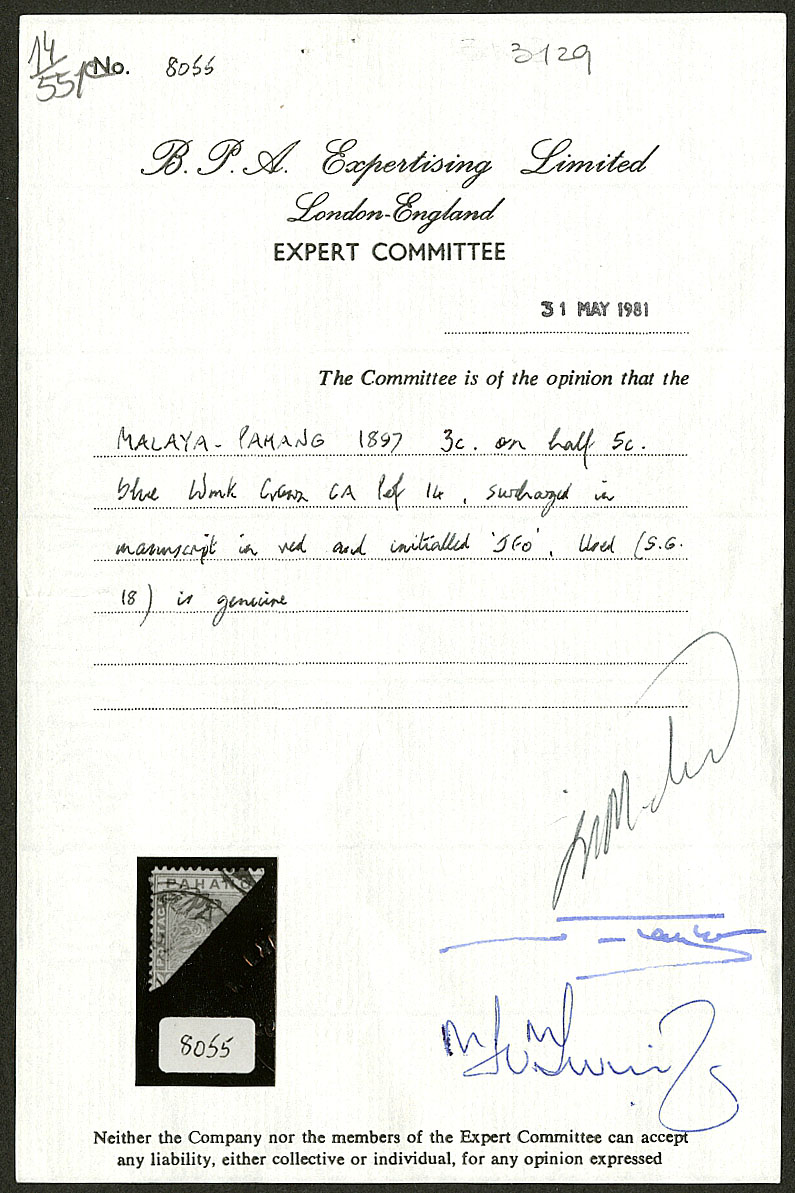 14
55
No. 8055
3129
B. P. A. Expertising Limited
London-England
EXPERT COMMITTEE
31 MAY 1981
The Committee is of the opinion that the
MALAYA - PAHANG 1897 3c. on half 5c.
blue Wmk Crown CA Perf 14, surcharged in
manuscript in red and initialled 'JFO', Used (S.G.
18) is genuine
PAHANG
POSTAGE
8055
Neither the Company nor the members of the Expert Committee can accept
any liability, either collective or individual, for any opinion expressed